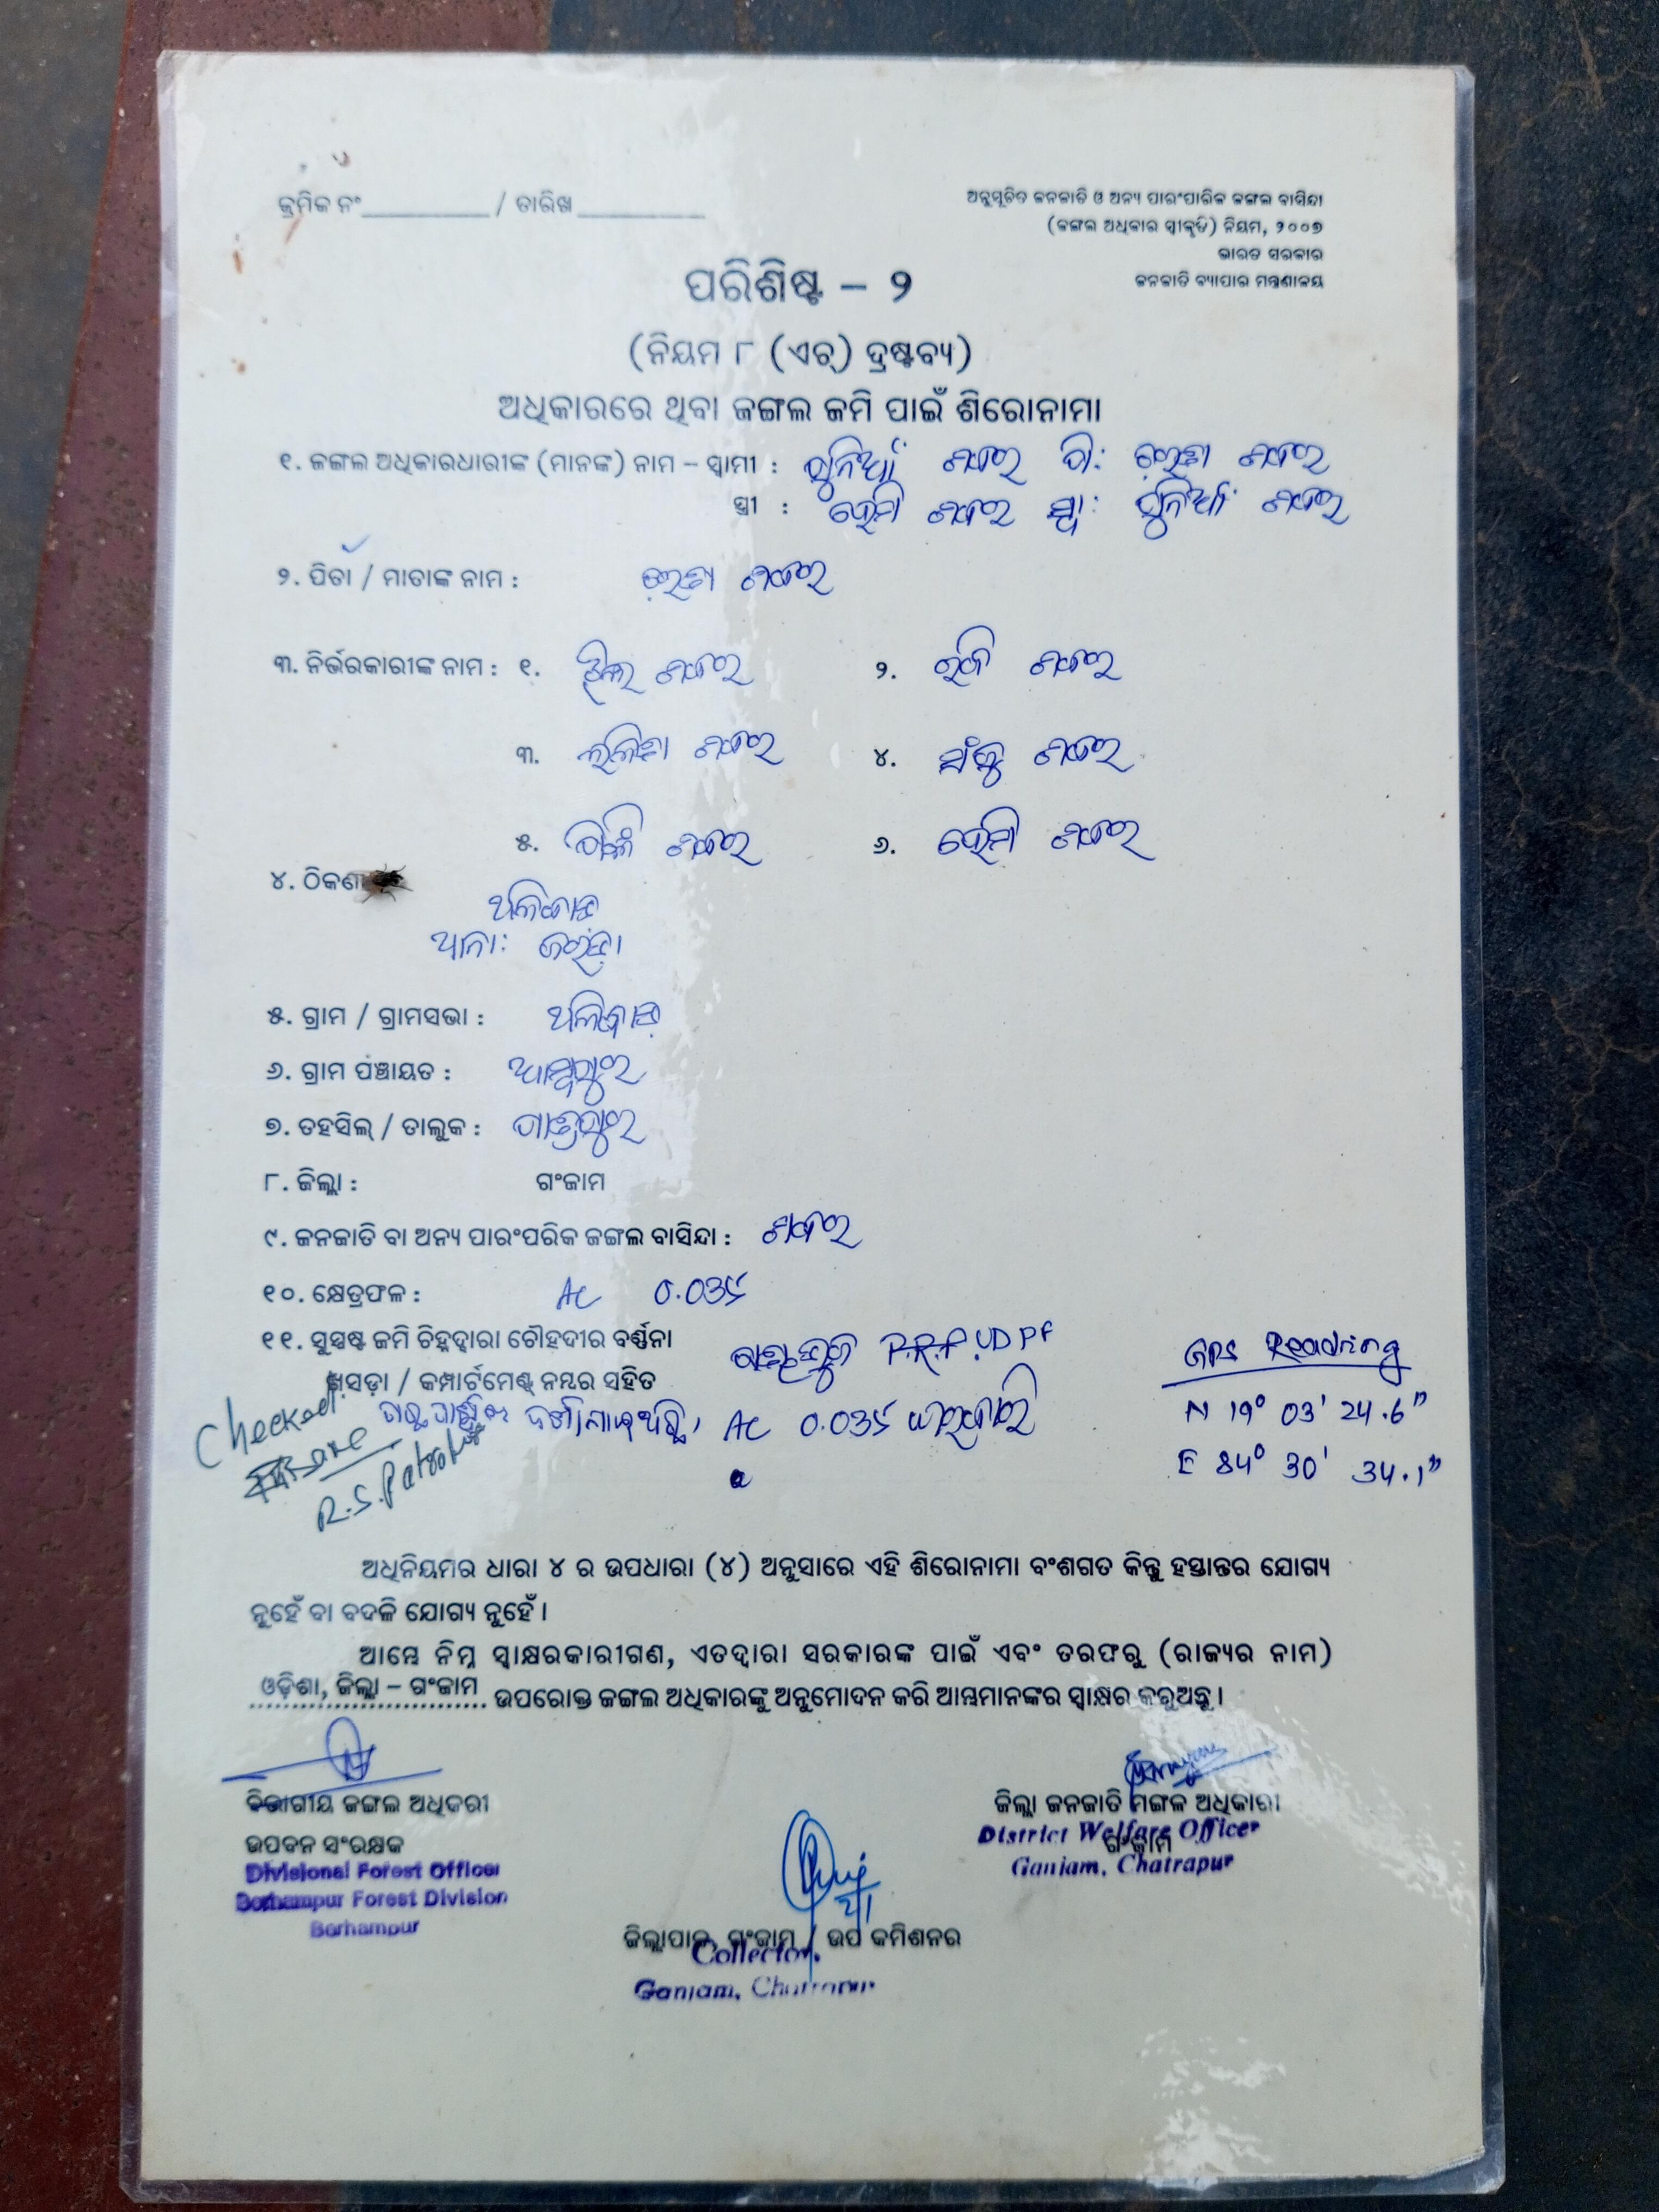 କ୍ରମିକ ନଂ__________ / ତାରିଖ__________
ଅନୁସୂଚିତ ଜନଜାତି ଓ ଅନ୍ୟ ପାରଂପାରିକ ଜଙ୍ଗଲ ବାସିନ୍ଦା
(ଜଙ୍ଗଲ ଅଧିକାର ସ୍ୱୀକୃତି) ନିୟମ, ୨୦୦୭
ଭାରତ ସରକାର
ଜନଜାତି ବ୍ୟାପାର ମନ୍ତ୍ରଣାଳୟ
ପରିଶିଷ୍ଟ – ୨
(ନିୟମ ୮ (ଏଚ୍) ଦ୍ରଷ୍ଟବ୍ୟ)
ଅଧିକାରରେ ଥିବା ଜଙ୍ଗଲ ଜମି ପାଇଁ ଶିରୋନାମା
୧. ଜଙ୍ଗଲ ଅଧିକାରଧାରୀଙ୍କ (ମାନଙ୍କ) ନାମ – ସ୍ୱାମୀ : ସୁନିଆଁ ଶବର ପି:
ସ୍ତ୍ରୀ : ହେମି ଶବର ସ୍ୱା: ସୁନିଆଁ ଶବର
୨. ପିତା / ମାତାଙ୍କ ନାମ : ଶବର
୩. ନିର୍ଭରକାରୀଙ୍କ ନାମ : ୧. ଶବର ୨. ରବି ଶବର
୩. ଲଲିତା ଶବର ୪. ଶବର
୫. ଶବର ୬. ହେମି ଶବର
୪. ଠିକଣା
ଥଳିବାଡ
ଥାନା: ଜରଡ଼ା
୫. ଗ୍ରାମ / ଗ୍ରାମସଭା : ଥଳିବାଡ
୬. ଗ୍ରାମ ପଞ୍ଚାୟତ : ଆମ୍ବପୁର
୭. ତହସିଲ୍ / ତାଲୁକ : ପାତ୍ରପୁର
୮. ଜିଲ୍ଲା : ଗଂଜାମ
୯. ଜନଜାତି ବା ଅନ୍ୟ ପାରଂପରିକ ଜଙ୍ଗଲ ବାସିନ୍ଦା : ଶବର
୧୦. କ୍ଷେତ୍ରଫଳ : Ac ୦.୦୩୫
୧୧. ସୁସ୍ପଷ୍ଟ ଜମି ଚିହ୍ନଦ୍ୱାରା ଚୌହଦୀର ବର୍ଣ୍ଣନା P.R.F. UDPF
ଖସଡ଼ା / କମ୍ପାର୍ଟମେଣ୍ଟ୍ ନମ୍ବର ସହିତ
Ac ୦.୦୩୫
GPS Reading
N 19° 03' 24.6"
E 84° 30' 34.1"
Checked
R.S.
ଅଧିନିୟମର ଧାରା ୪ ର ଉପଧାରା (୪) ଅନୁସାରେ ଏହି ଶିରୋନାମା ବଂଶଗତ କିନ୍ତୁ ହସ୍ତାନ୍ତର ଯୋଗ୍ୟ
ନୁହେଁ ବା ବଦଳି ଯୋଗ୍ୟ ନୁହେଁ ।
ଆମ୍ଭେ ନିମ୍ନ ସ୍ୱାକ୍ଷରକାରୀଗଣ, ଏତଦ୍ୱାରା ସରକାରଙ୍କ ପାଇଁ ଏବଂ ତରଫରୁ (ରାଜ୍ୟର ନାମ)
ଓଡ଼ିଶା, ଜିଲ୍ଲା – ଗଂଜାମ ଉପରୋକ୍ତ ଜଙ୍ଗଲ ଅଧିକାରଙ୍କୁ ଅନୁମୋଦନ କରି ଆମ୍ଭମାନଙ୍କର ସ୍ୱାକ୍ଷର କରୁଅଛୁ ।
ବିଭାଗୀୟ ଜଙ୍ଗଲ ଅଧିକାରୀ
ଉପବନ ସଂରକ୍ଷକ
Divisional Forest Officer
Berhampur Forest Division
Berhampur
ଜିଲ୍ଲା ଜନଜାତି ମଙ୍ଗଳ ଅଧିକାରୀ
ଗଂଜାମ
District Welfare Officer
Ganjam, Chatrapur
ଜିଲ୍ଲାପାଳ, ଗଂଜାମ / ଉପ କମିଶନର
Collector,
Ganjam, Chatrapur